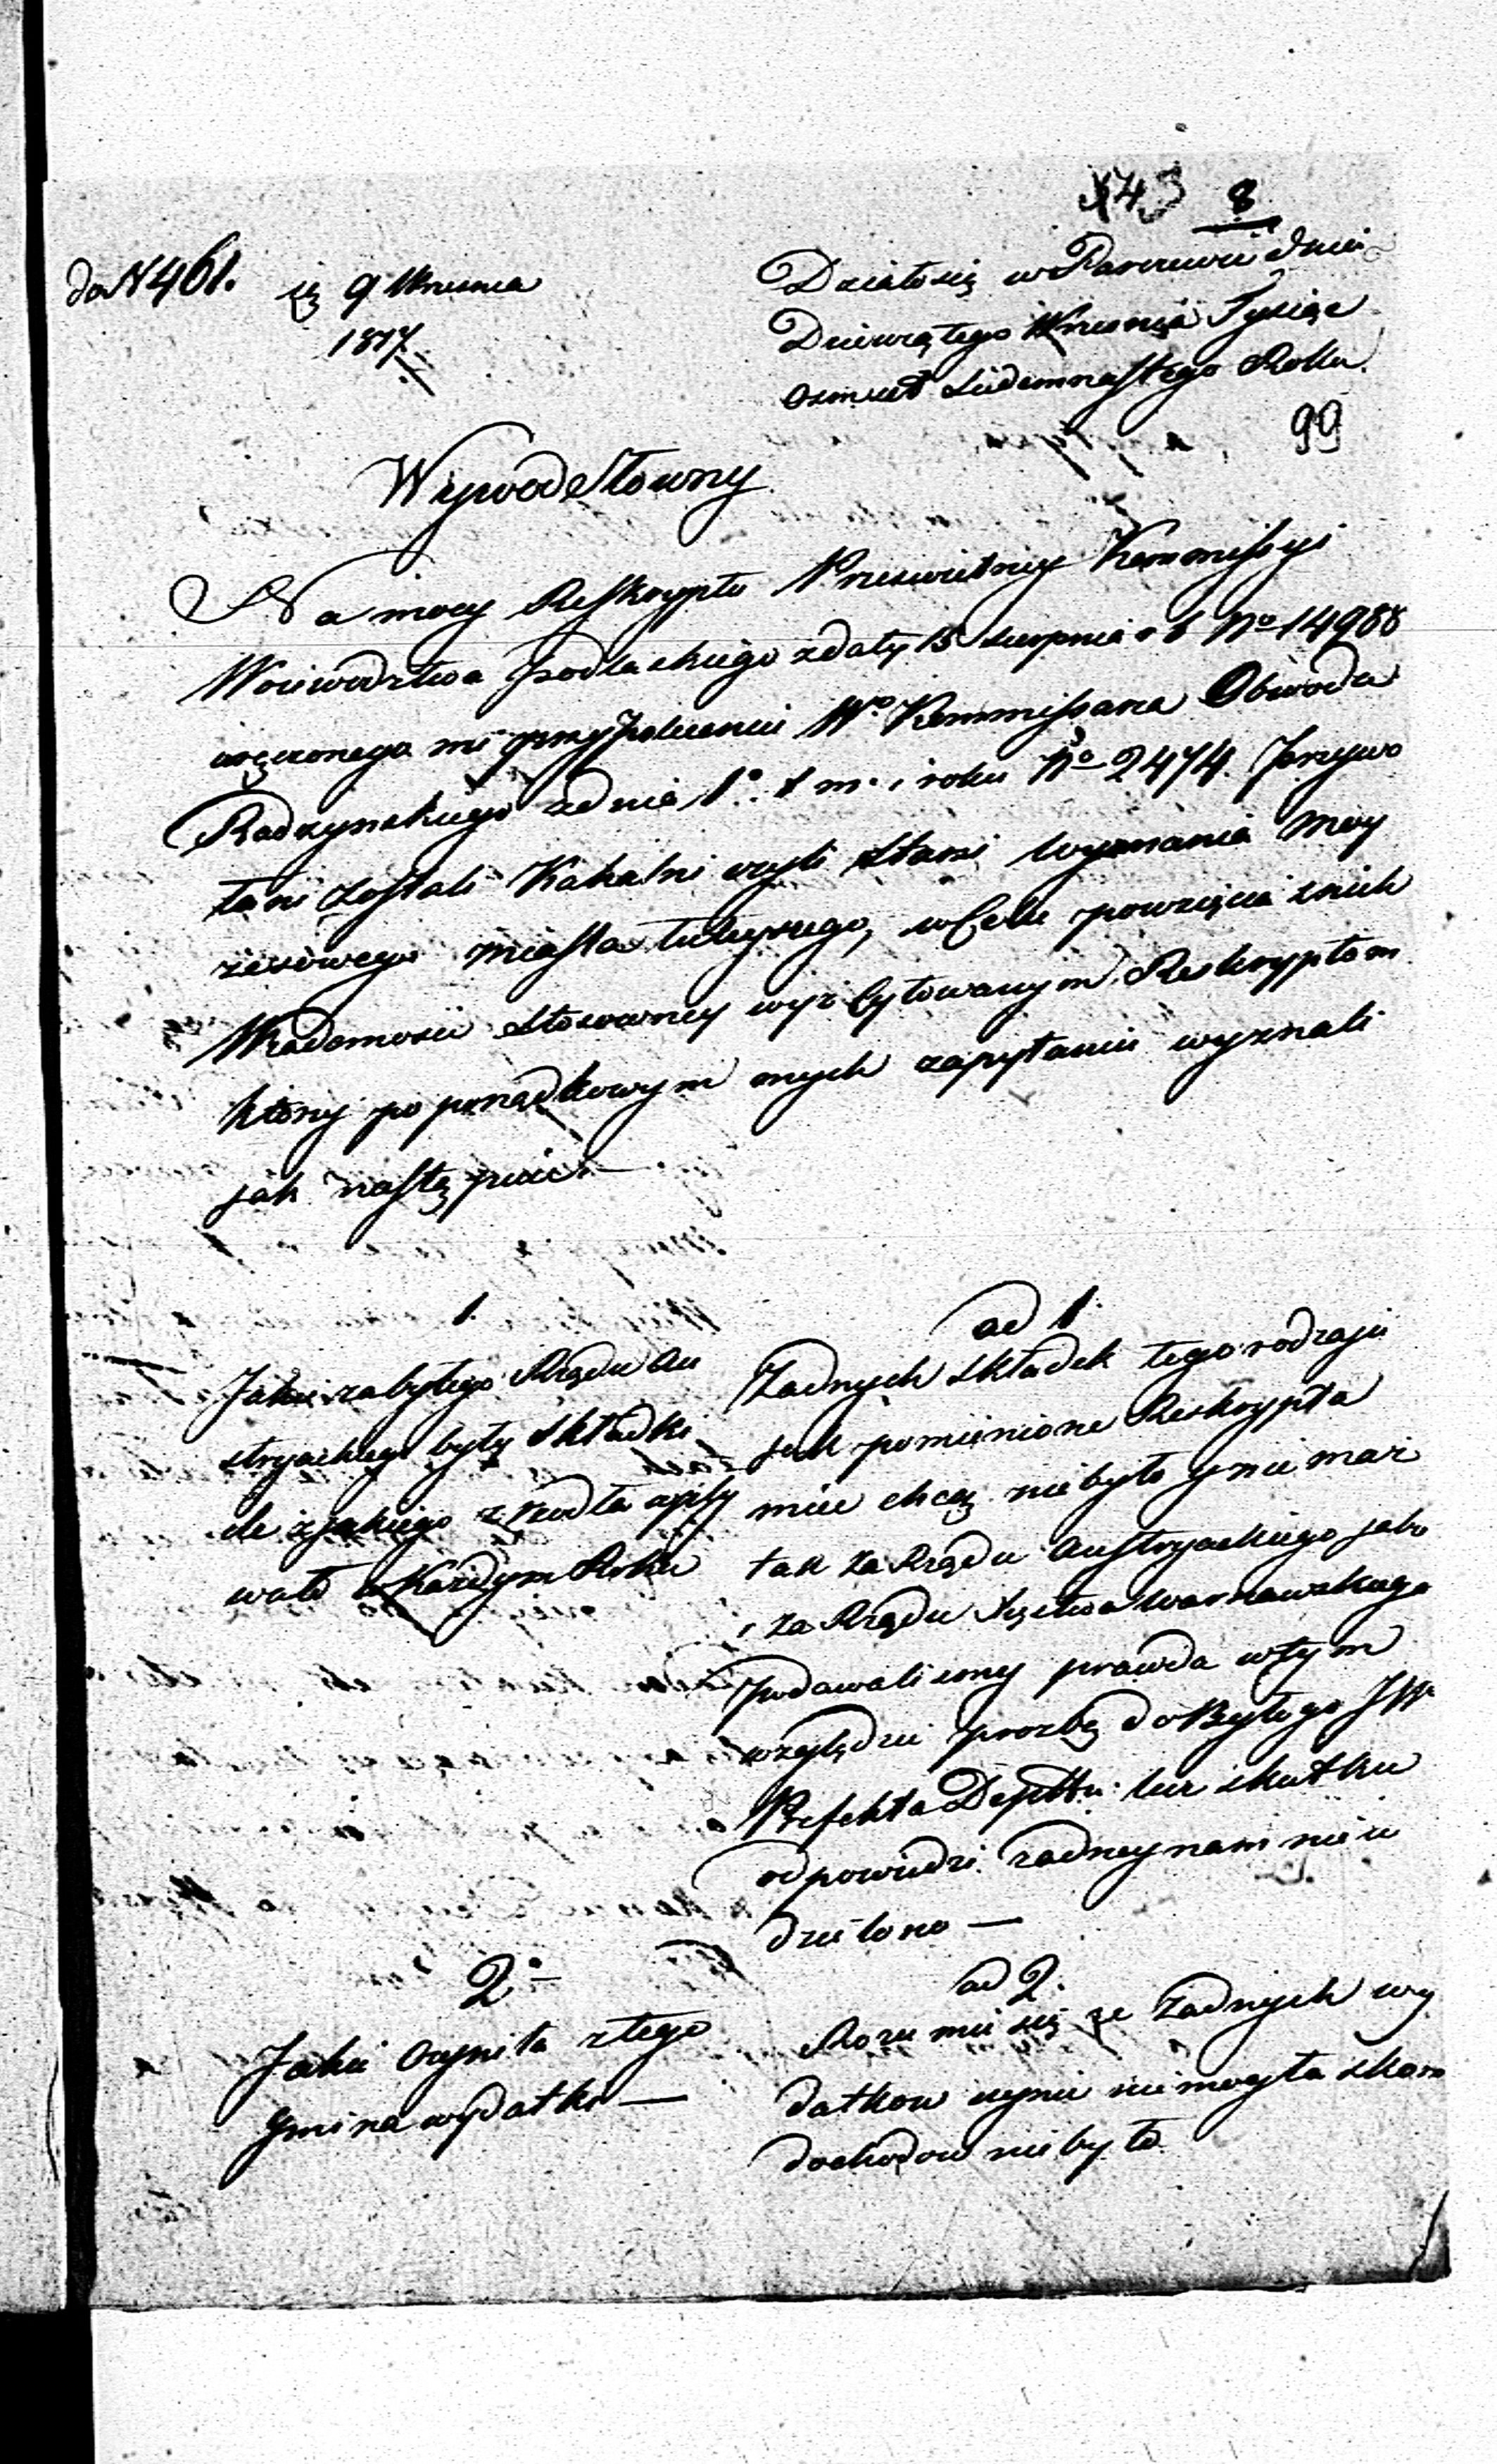 8
do N 461. 9 Wrzesnia
1817
Działo się w Parczewie dnia
Dziewiątego Wrzesnia Tysiąc
osmset siedemnastego Roku.
99
Wywod Słowny
Na mocy Reskryptu Prześwietney Kommissyi
Woiewodztwa Podlaskiego z daty 15 Sierpnia r b No 14988
wręczonego mi przy Poleceniu Wo Kommissarza Obwodu
Radzynskiego z dnia 1o m. i roku No 2474. Przywo
łani zostali Kahalni czyli starsi wyznania Moy
żeszowego miasta tuteyszego, w Celu powzięcia z nich
Wiadomości stosowney wyż Cytowanym Reskryptom
którzy po porządkowym onych zapytaniu wyznali
jak następuie —
1.
Jakie za byłego Rządu Au
stryackiego były składki
ile z jakiego zrzodła wpły
wało w Każdym Roku
ad 1
Żadnych składek tego rodzaju
jak pomienione Reskrypta
mieć chcą nie było y nie masz
tak za Rządu Austryackiego jako
i za Rządu Xięstwa Warszawskiego
Podawalismy prawda w tym
względzie prozbę do Byłego JW
Prefekta Deptttu. lecz skutku
odpowiedzi żadney nam nie u
dzielono —
2o
Jakie Czyniła z tego
Gmina wydatki —
ad 2.
Rozumie się że Żadnych wy
datkow czynić nie mogła skoro
dochodow nie było.